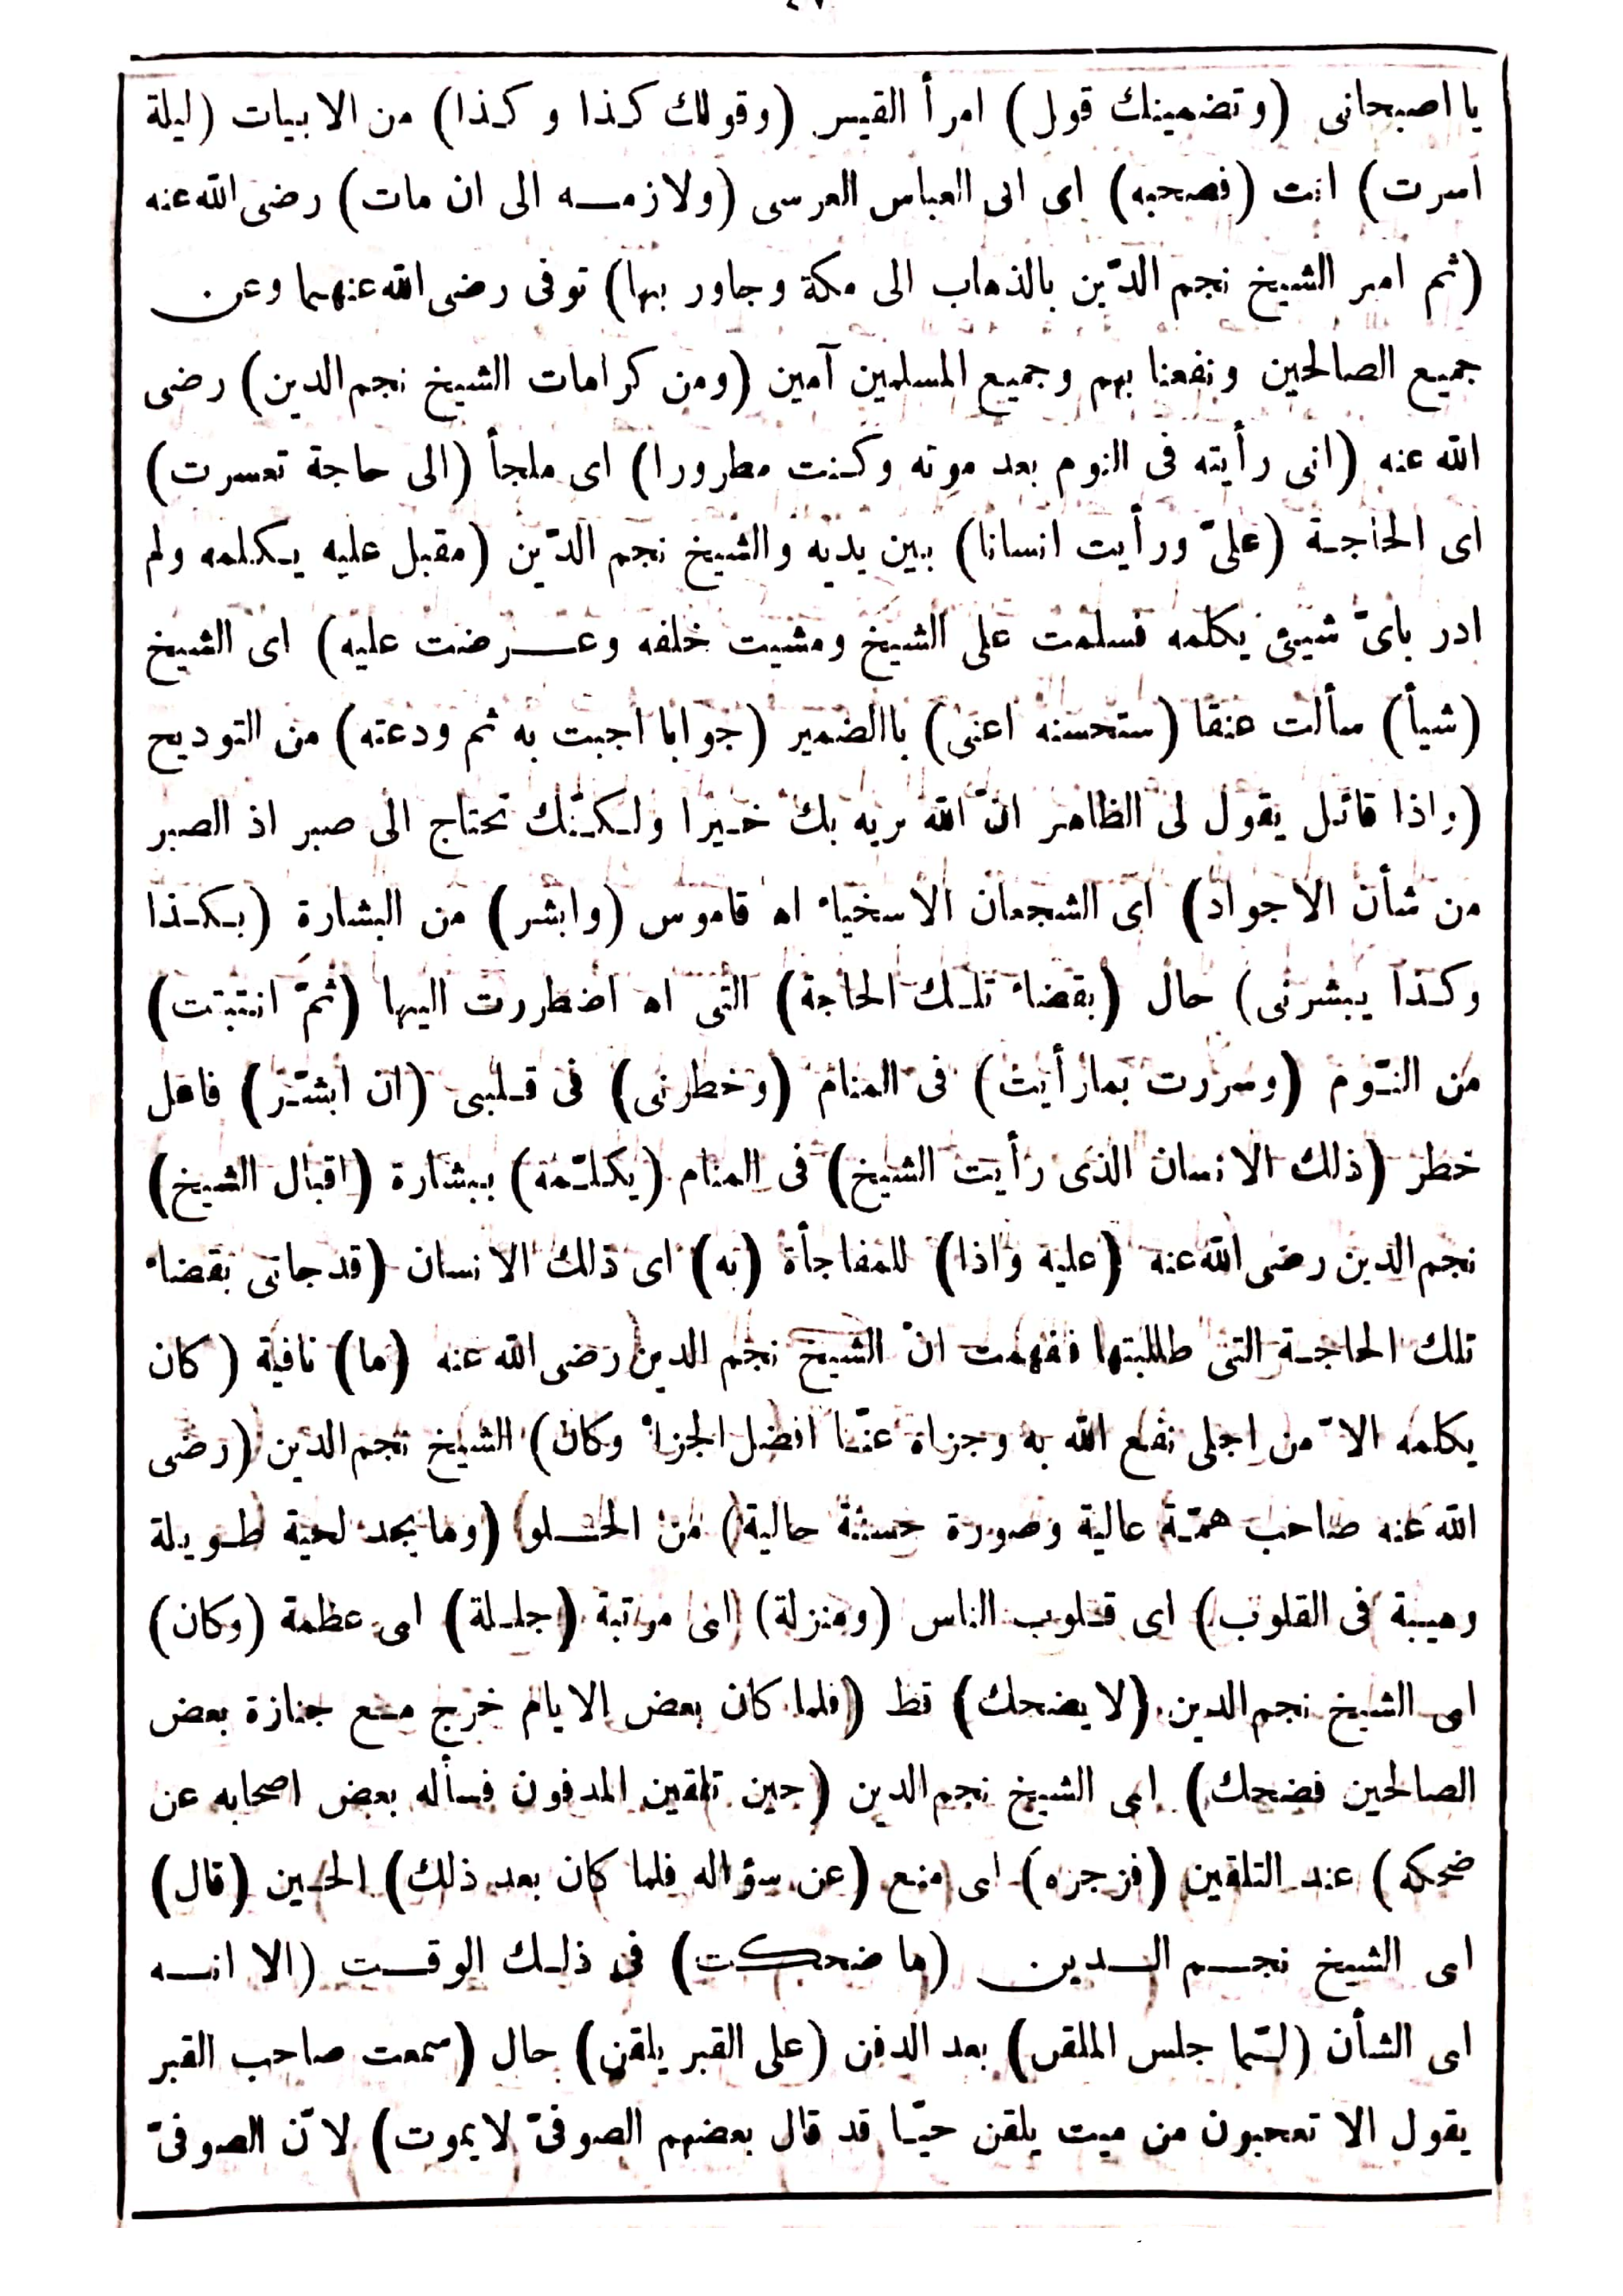 يا اصبحانى (وتضمينك قول) امرأ القيس (وقولك كذا وكذا) من الابيات (ليلة
اسرت) انت (فصحبه) اى ابى العباس المرسى (ولازمه الى ان مات) رضى الله عنه
(ثم امر الشيخ نجم الدّين بالذهاب الى مكة وجاور بها) توفى رضى الله عنهما وعن
جميع الصالحين ونفعنا بهم وجميع المسلمين آمين (ومن كرامات الشيخ نجم الدين) رضى
الله عنه (انى رأيته فى النوم بعد موته وكنت مطرورا) اى ملجأ (الى حاجة تعسرت)
اى الحاجة (علىّ ورأيت انسانا) بين يديه والشيخ نجم الدّين (مقبل عليه يكلمه ولم
ادر باىّ شيئ يكلمه فسلمت على الشيخ ومشيت خلفه وعرضت عليه) اى الشيخ
(شيأ) سألت عنقا (ستحسنه اعنى) باالضمير (جوابا اجبت به ثم ودعته) من التوديح
(واذا قائل يقول لى الظاهر انّ الله يريه بك خيرا ولكنّك تحتاج الى صبر اذ الصبر
من شأن الاجواد) اى الشجعان الاسخياء اه قاموس (وابشر) من البشارة (بكذا
وكذا يبشرنى) حال (بقضاء تلك الحاجة) التى اه اضطررت اليها (ثمّ انتبتت)
من النّوم (وسررت بمارأيت) فى المنام (وخطرنى) فى قلبى (ان ابشّر) فاعل
خطر (ذلك الانسان الذى رأيت الشيخ) فى المنام (يكلّمه) ببشارة (اقبال الشيخ)
نجم الدين رضى الله عنه (عليه واذا) للمفاجأة (به) اى ذلك الانسان (قد جاتى بقضاء
تلك الحاجة التى طللبتها ففهمت انّ الشيخ نجم الدين رضى الله عنه (ما) نافية (كان
يكلمه الاّ من اجلى نفع الله به وجزاه عنّا افضل الجزاء وكان) الشيخ نجم الدّين (رضى
الله عنه صاحب همّة عالية وصورة حسنة حالية) من الحلو (وما يجد لحية طويلة
وهيبة فى القلوب) اى قلوب الناس (ومنزلة) اى مرتبة (جليلة) اى عظمة (وكان)
اى الشيخ نجم الدين (لايضحك) قط (فلما كان بعض الايام خرج مع جنازة بعض
الصالحين فضحك) اى الشيخ نجم الدين (حين تلقين المدفون فسأله بعض اصحابه عن
ضحكه) عند التلقين (فزجره) اى منع (عن سؤاله فلما كان بعد ذلك) الحين (قال)
اى الشيخ نجم الدين (ما ضحكت) فى ذلك الوقت (الا انه
اى الشأن (لمّا جلس الملقن) بعد الدفن (على القبر يلقن) حال (سمعت صاحب القبر
يقول الا تعجبون من ميت يلقن حيّا قد قال بعضهم الصوفىّ لايموت) لانّ الصوفىّ